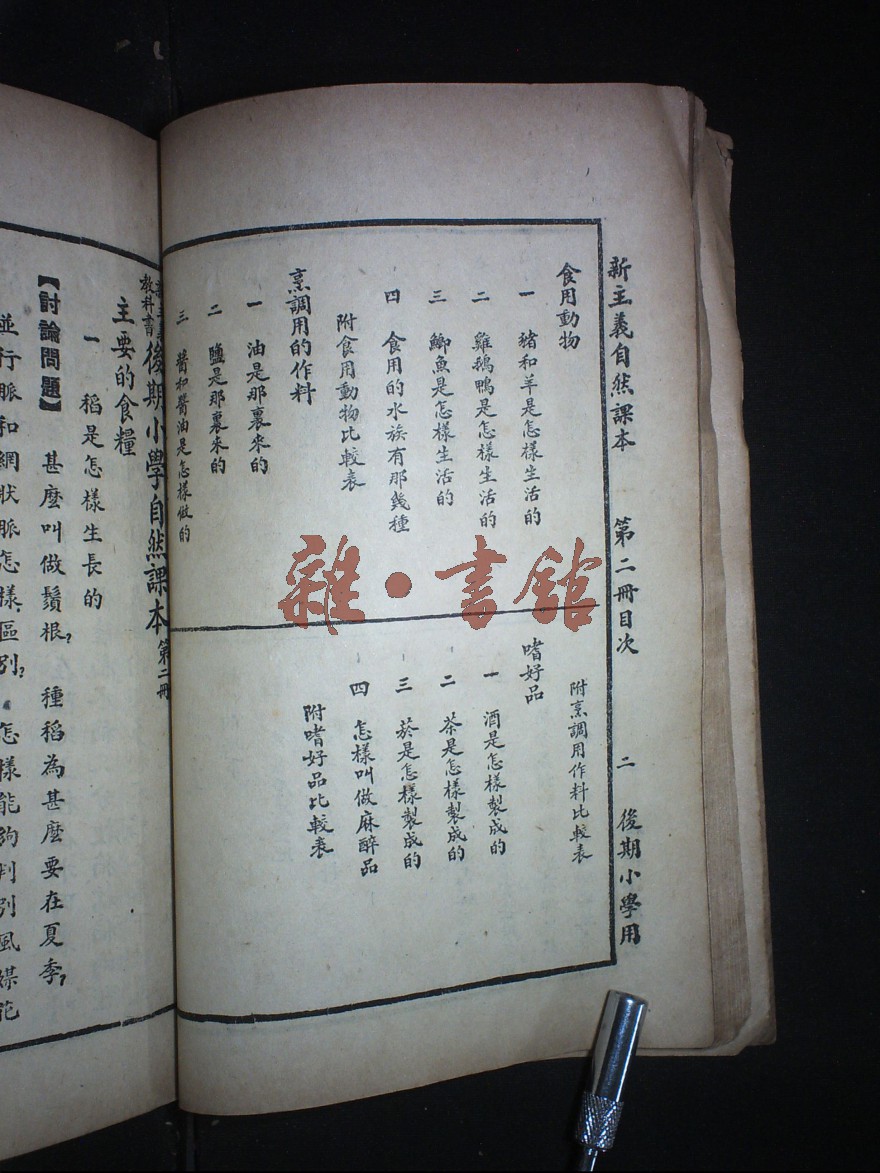 新主義自然課本　第二冊目次　二　後期小學用
食用動物
一　豬和羊是怎樣生活的
二　雞鵝鴨是怎樣生活的
三　鯽魚是怎樣生活的
四　食用的水族有那幾種
附食用動物比較表
烹調用的作料
一　油是那裏來的
二　鹽是那裏來的
三　醬和醬油是怎樣做的
附烹調用作料比較表
嗜好品
一　酒是怎樣製成的
二　茶是怎樣製成的
三　菸是怎樣製成的
四　怎樣叫做麻醉品
附嗜好品比較表
雜·書館
教科書後期小學自然課本　第二冊
主要的食糧
一　稻是怎樣生長的
【討論問題】　甚麼叫做鬚根？　種稻為甚麼要在夏季？
並行脈和網狀脈怎樣區別？　怎樣能夠判別風媒花